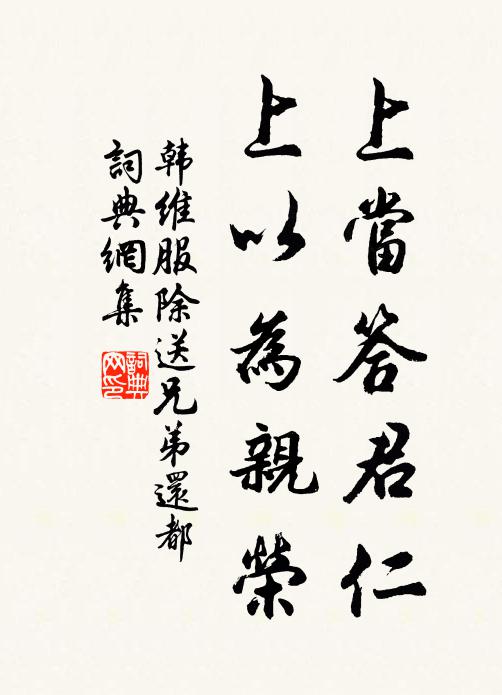 上當答君仁
上以為親榮
韩維服除送兄弟還都
詞典網集
詞典
网印